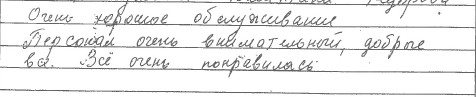 Очень хорошое обслуживание
Персонал очень внимательный, добрые
вы. Всё очень понравилась